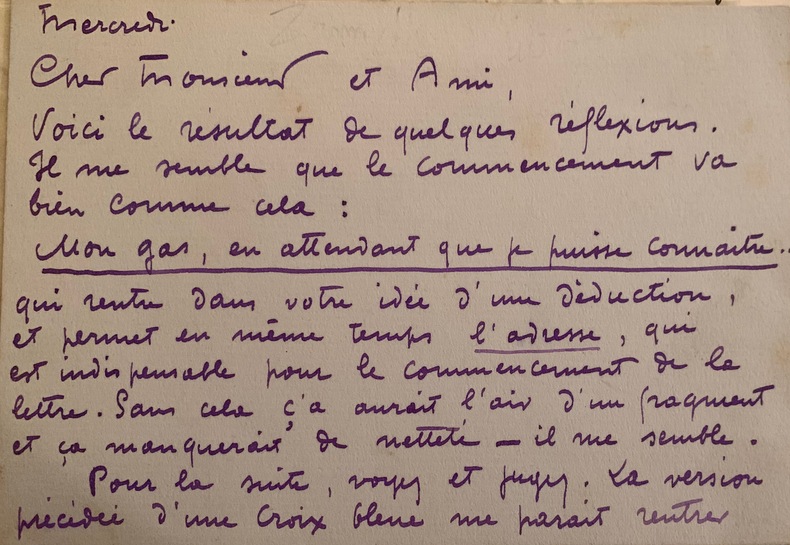 Mercredi.
Cher Monsieur et Ami,
Voici le résultat de quelques réflexions.
Il me semble que le commencement va
bien comme cela :
Mon gas, en attendant que je puisse connaître..
qui rentre dans votre idée d'une déduction,
et permet en même temps l'adresse, qui
est indispensable pour le commencement de la
lettre. Sans cela ç'a aurait l'air d'un fragment
et ça manquerait de netteté — il me semble.
Pour la suite, voyez et jugez. La version
précédée d'une Croix bleue me paraît rentrer